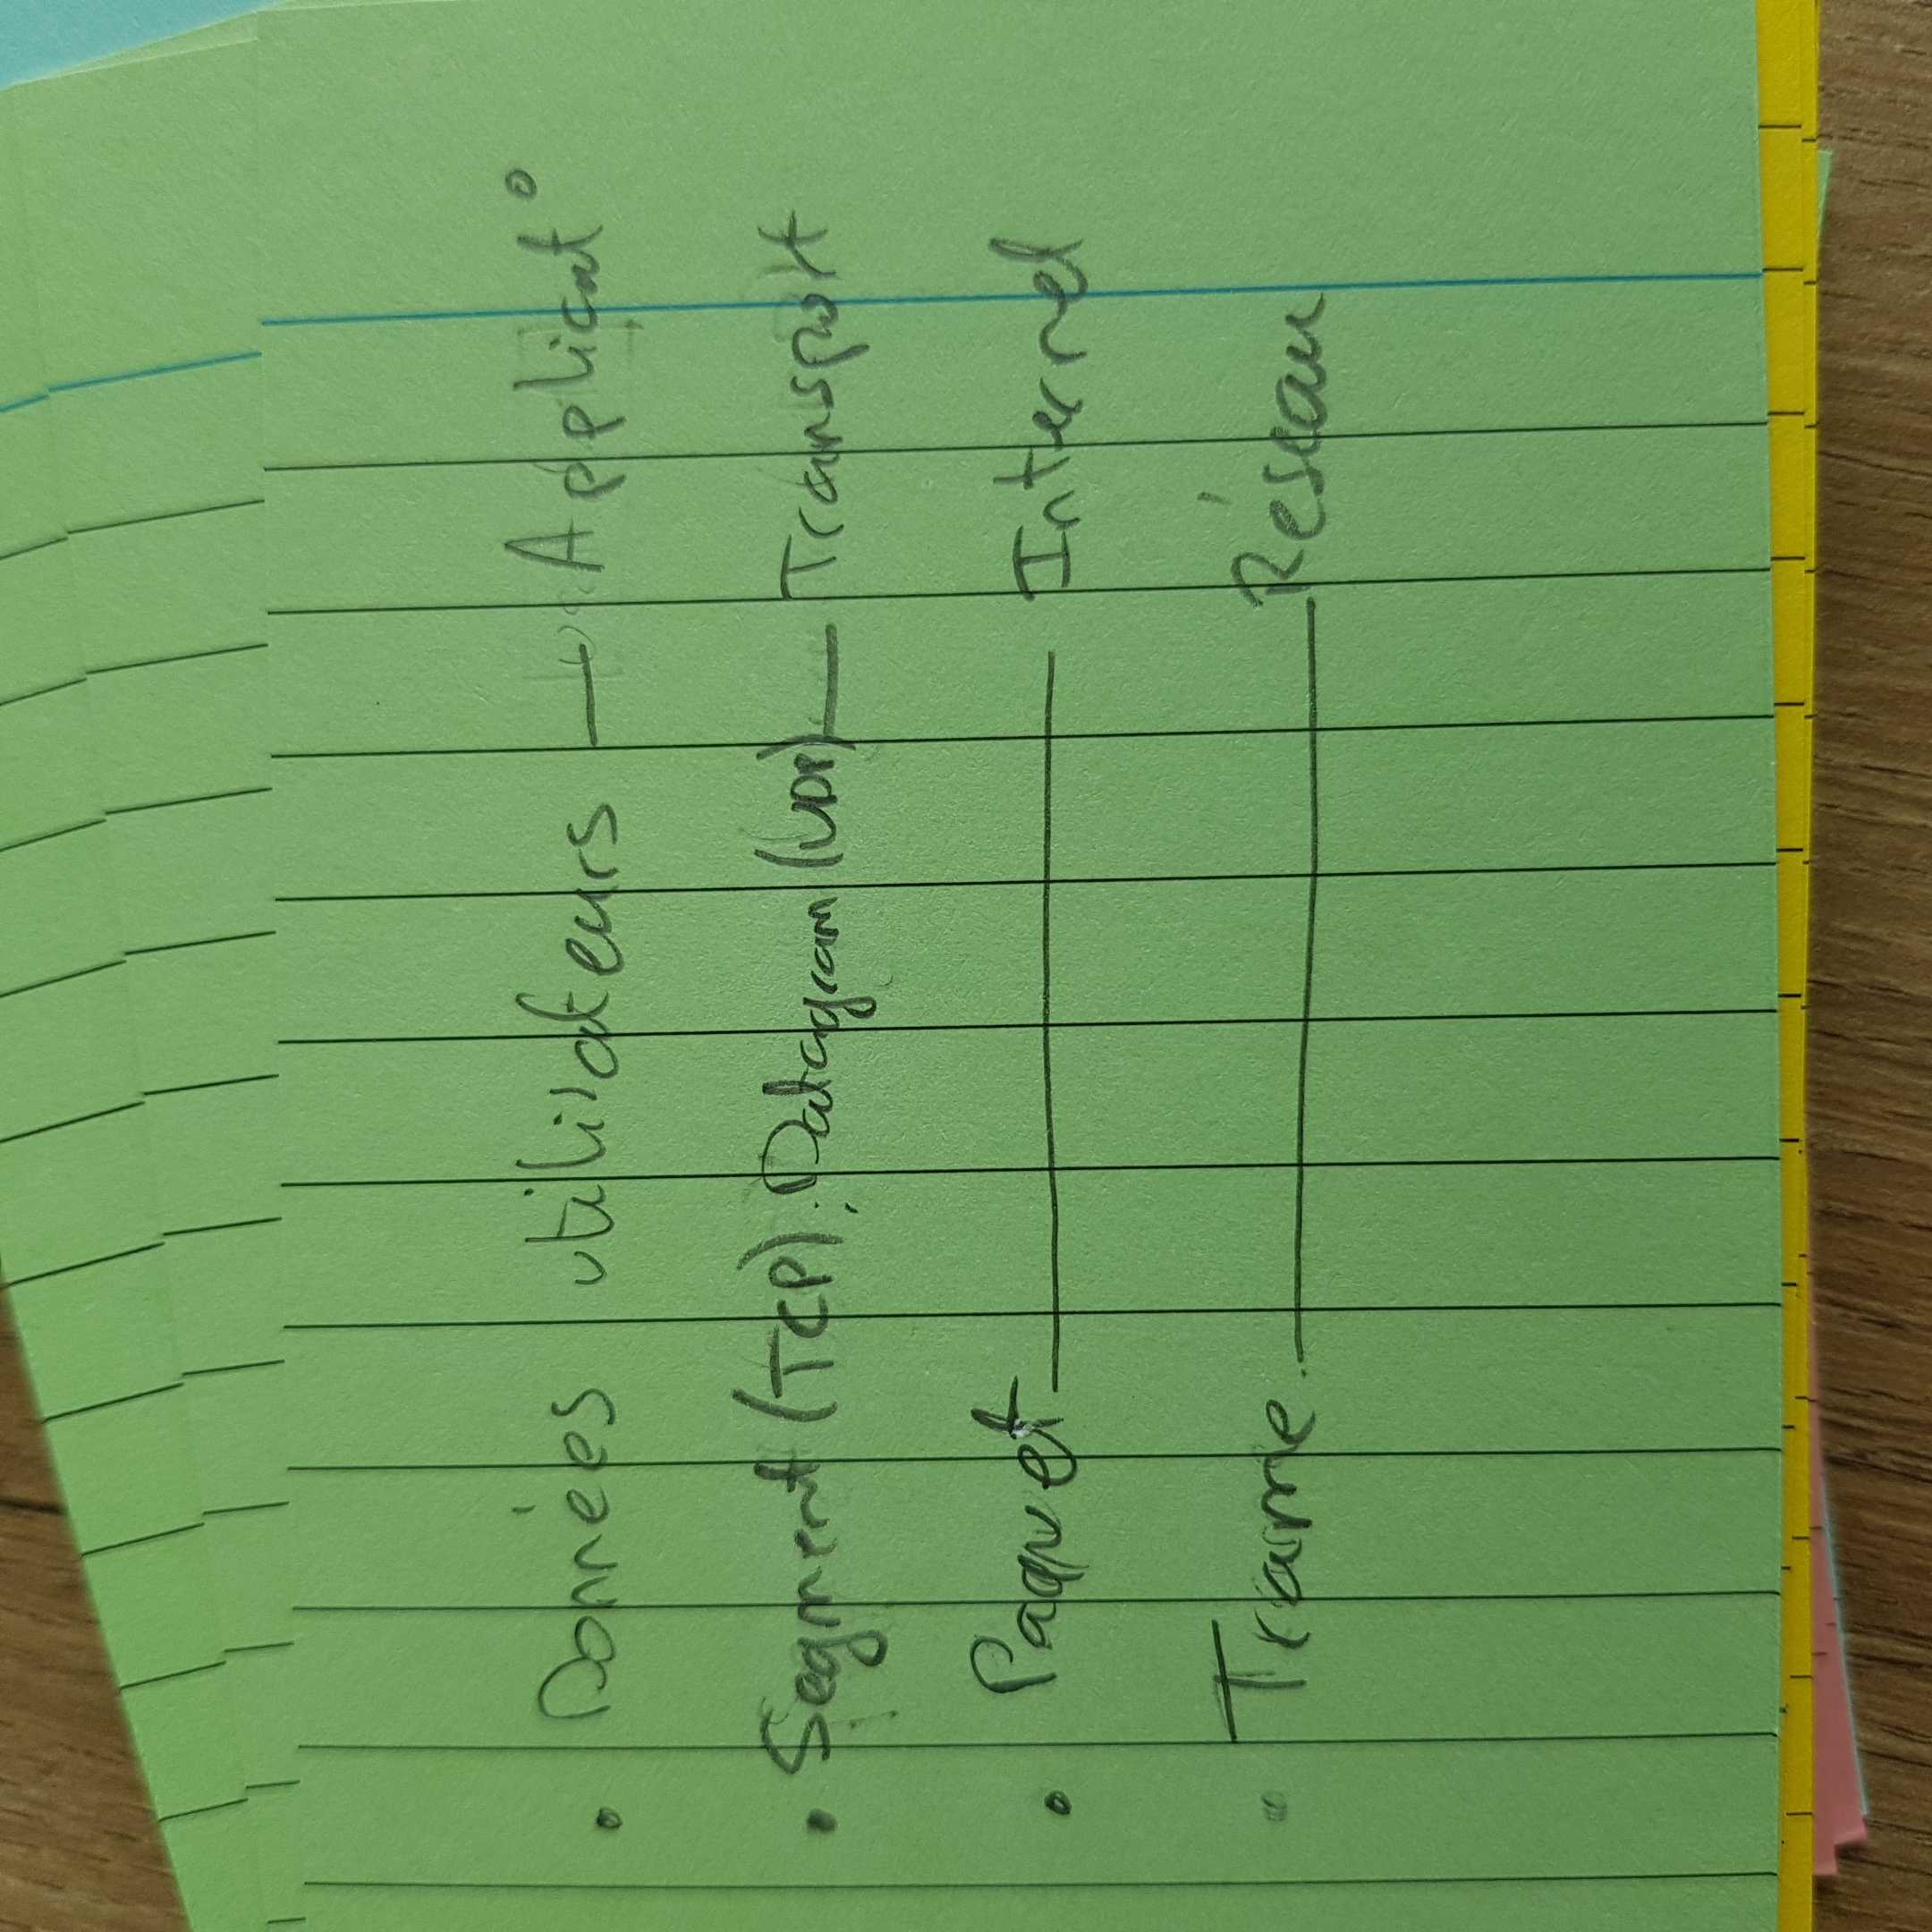 • Données utilisateurs → Applicat°
• Segment (TCP); Datagram (UDP) — Transport
• Paquet — Internet
• Trame — Réseau